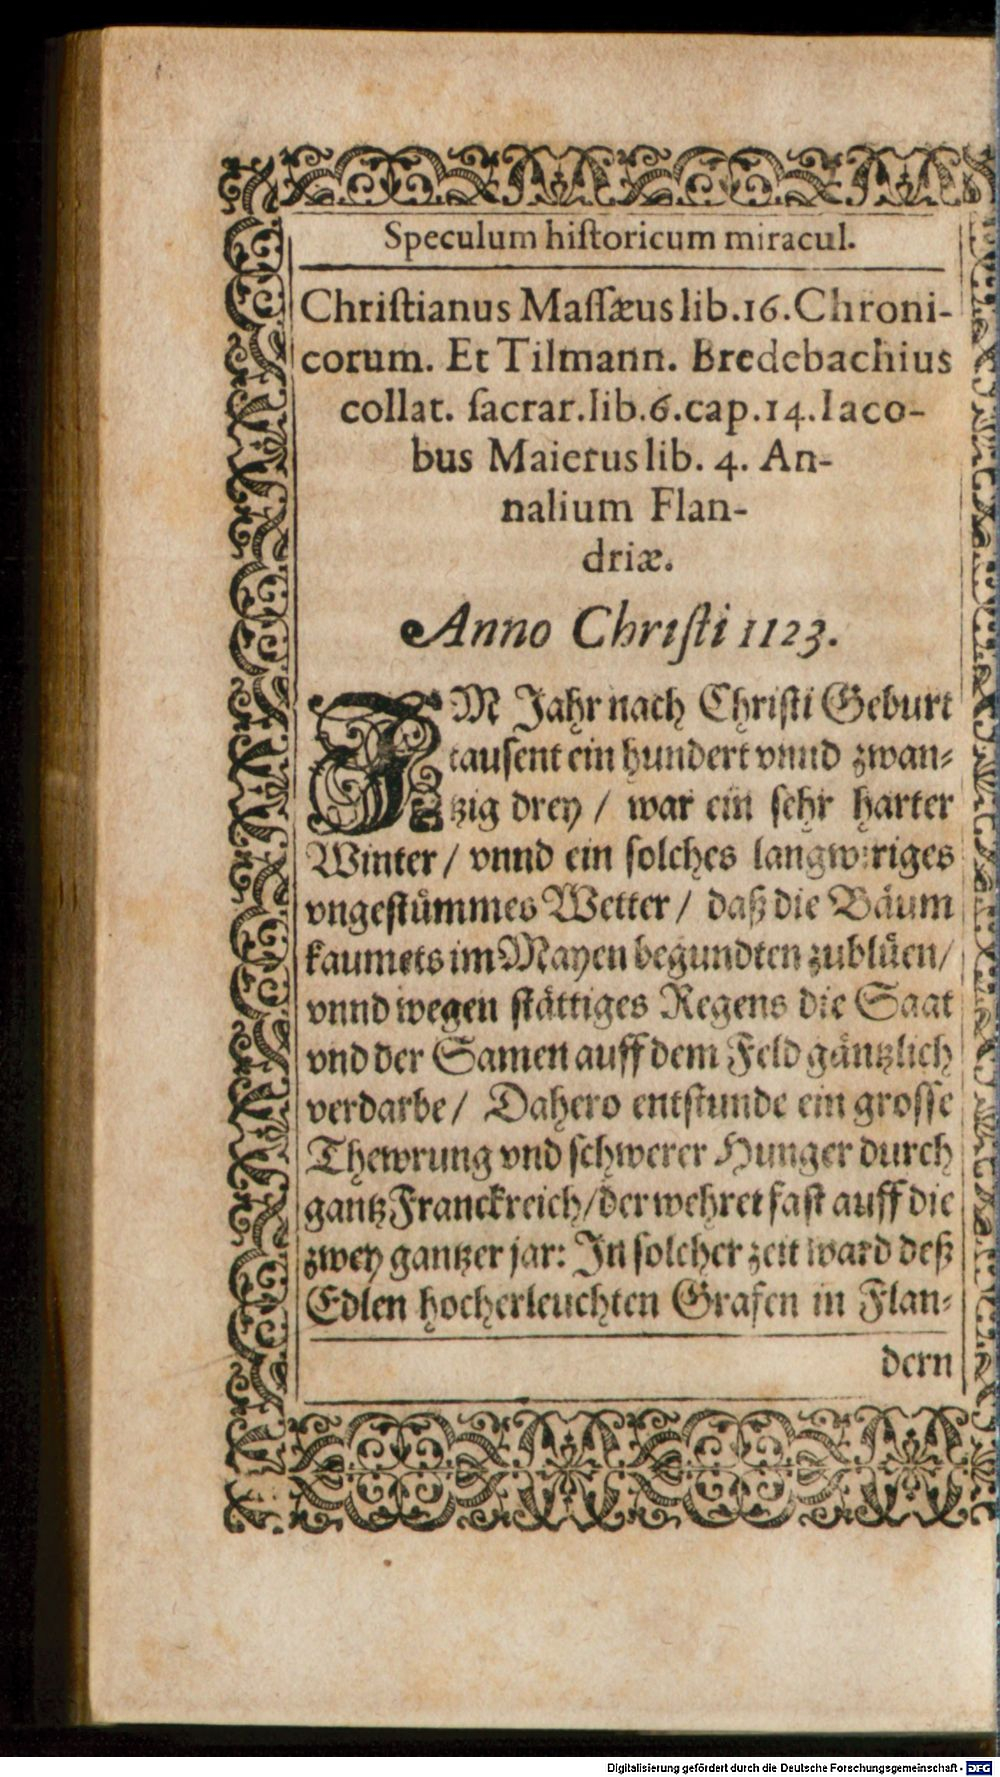 Speculum hiſtoricum miracul.
Chriſtianus Maſſæus lib.16.Chroni-
corum. Et Tilmann. Bredebachius
collat. ſacrar.lib.6.cap.14.Iaco-
bus Maierus lib. 4. An-
nalium Flan-
driæ.
Anno Chriſti 1123.
IM Jahr nach Chriſti Geburt
tauſent ein hundert vnnd zwan-
tzig drey / war ein ſehr harter
Winter / vnnd ein ſolches langwiriges
vngeſtuͤmmes Wetter / daß die Baͤum
kaumets im Mayen begundten zubluͤen /
vnnd wegen ſtaͤttiges Regens die Saat
vnd der Samen auff dem Feld gaͤntzlich
verdarbe / Dahero entſtunde ein groſſe
Thewrung vnd ſchwerer Hunger durch
gantz Franckreich / der wehret faſt auff die
zwey gantzer jar: In ſolcher zeit ward deß
Edlen hocherleuchten Grafen in Flan-
dern
Digitalisierung gefördert durch die Deutsche Forschungsgemeinschaft - DFG